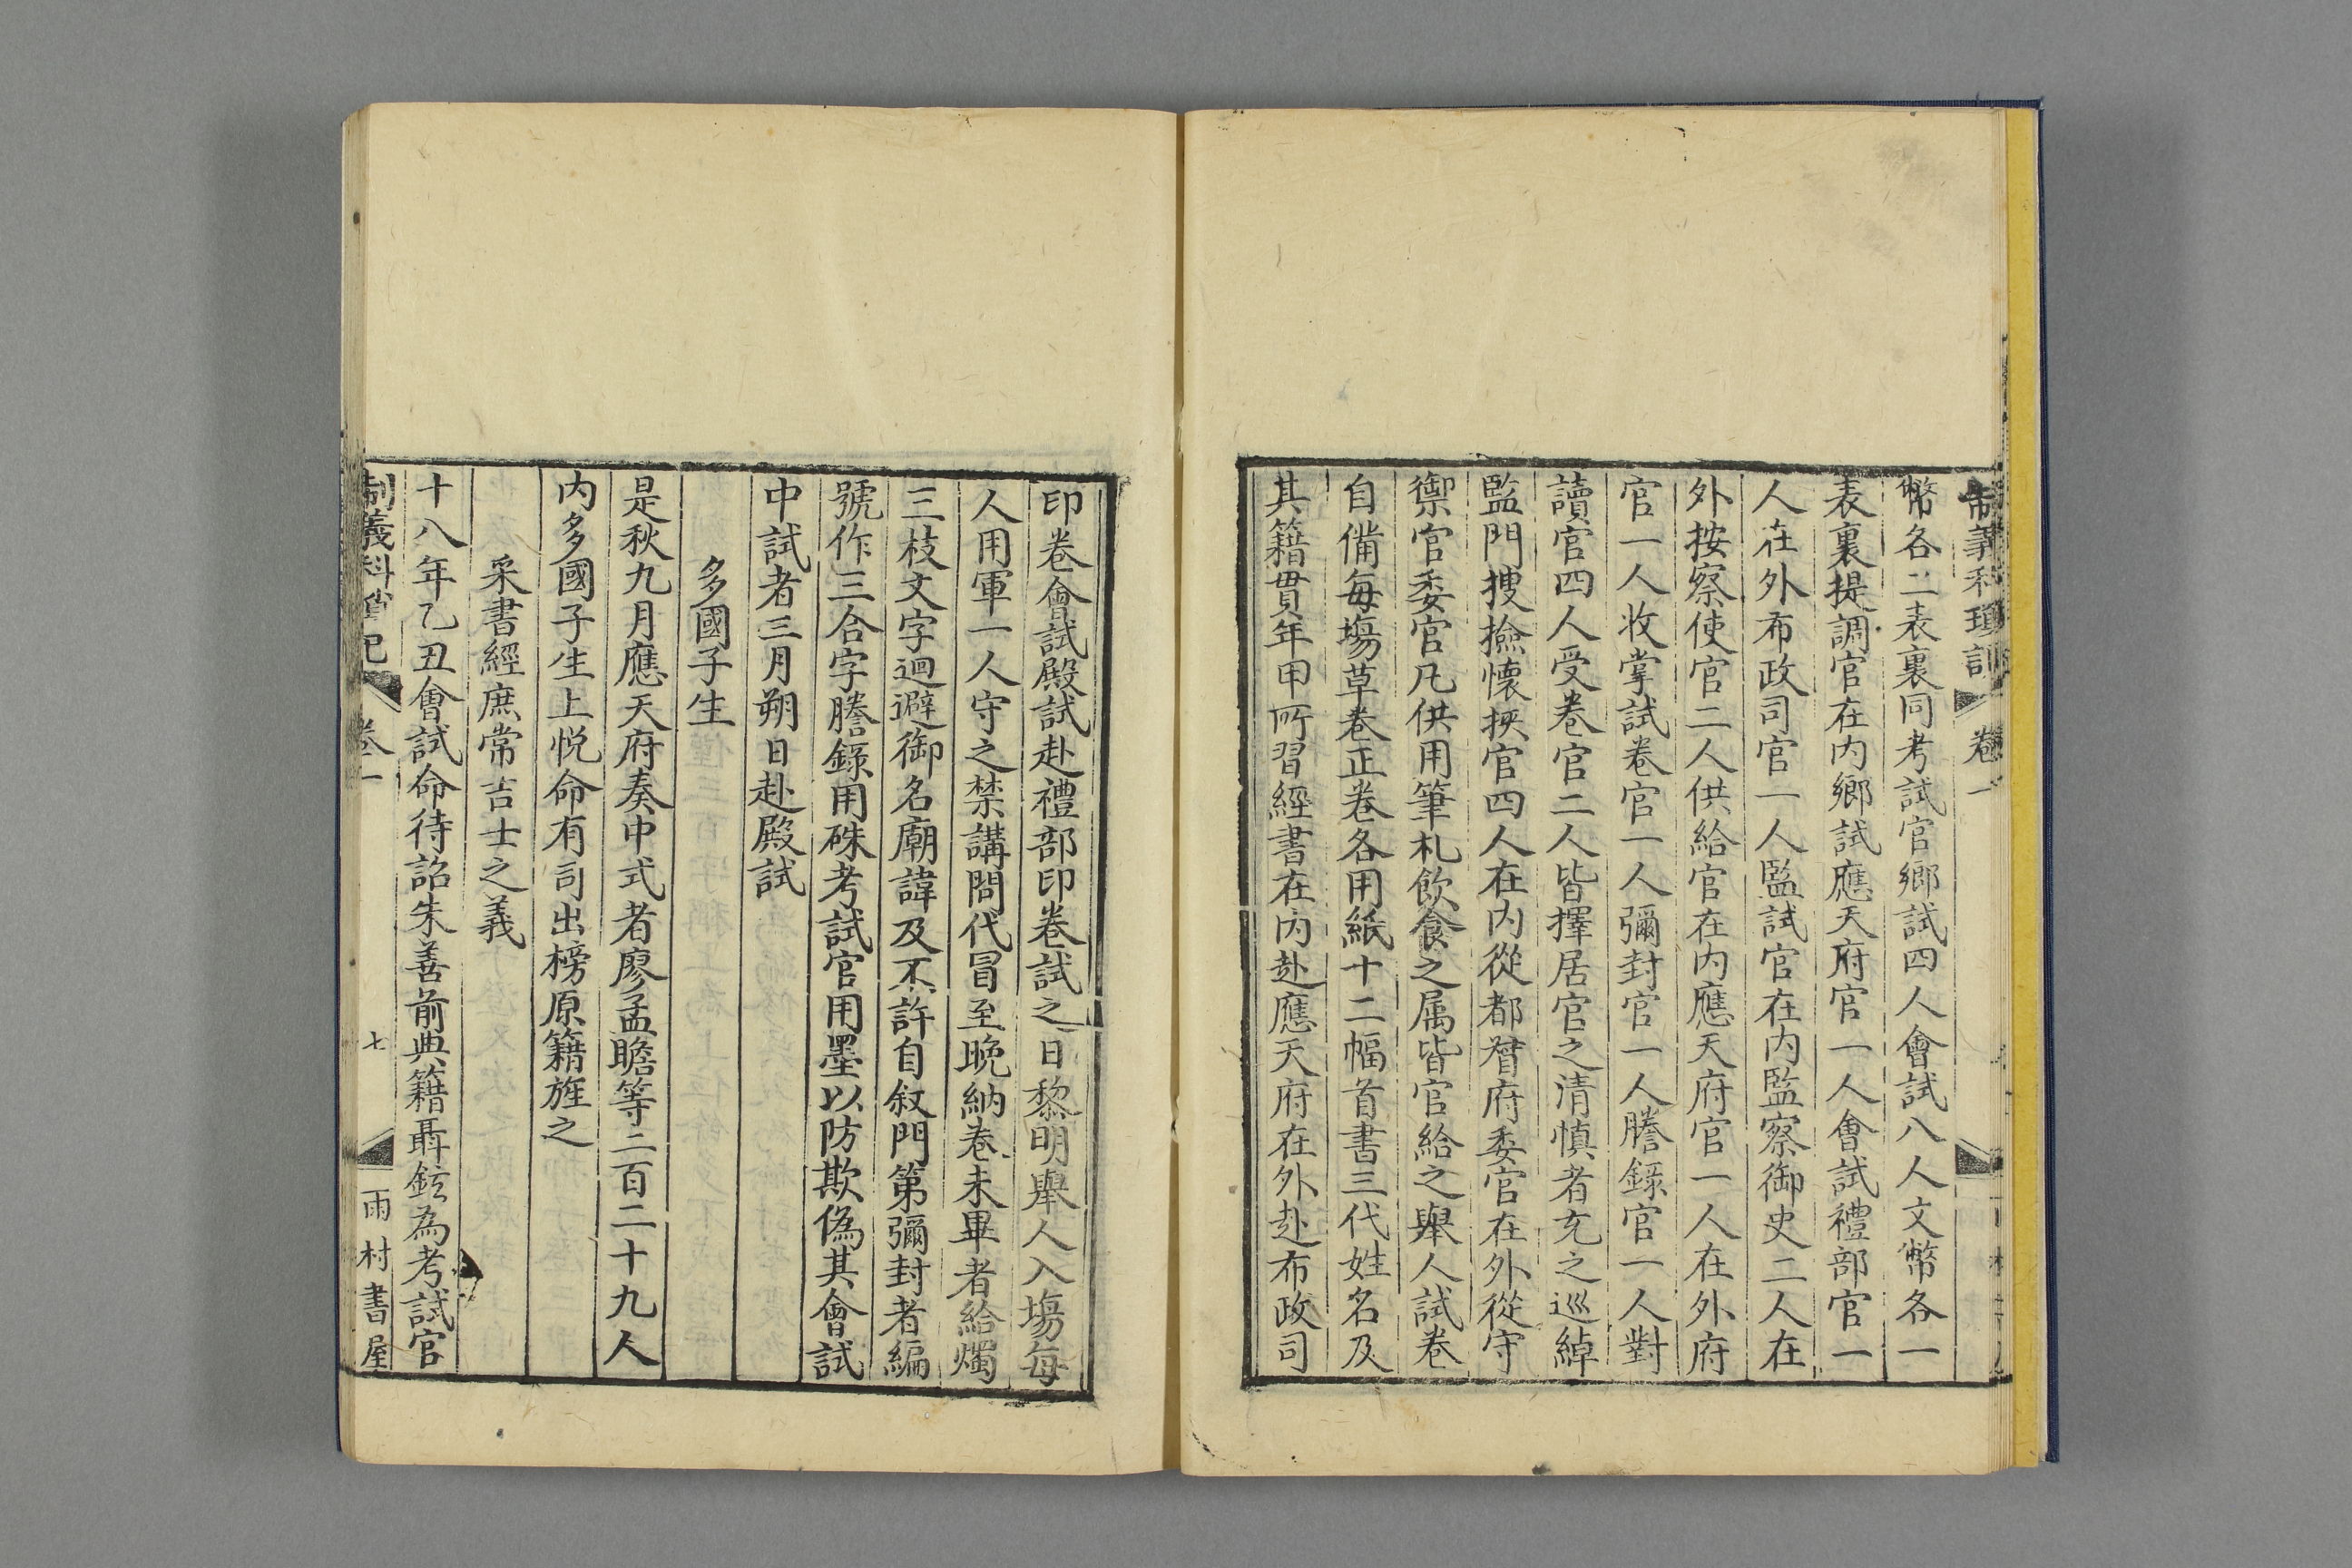 制義科瑣記 卷一
幣各二表裏同考試官鄉試四人會試八人文幣各一
表裏提調官在內鄉試應天府官一人會試禮部官一
人在外布政司官一人監試官在內監察御史二人在
外按察使官二人供給官在內應天府官一人在外府
官一人收掌試卷官一人彌封官一人謄錄官一人對
讀官四人受卷官二人皆擇居官之清慎者充之巡綽
監門搜撿懷挾官四人在內從都督府委官在外從守
禦官委官凡供用筆札飲食之属皆官給之舉人試卷
自備每塲草卷正卷各用紙十二幅首書三代姓名及
其籍貫年甲所習經書在內赴應天府在外赴布政司
印卷會試殿試赴禮部印卷試之日黎明舉人入塲每
人用軍一人守之禁講問代冒至晚納卷未畢者給燭
三枝文字迴避御名廟諱及不許自敘門第彌封者編
號作三合字謄錄用硃考試官用墨以防欺偽其會試
中試者三月朔日赴殿試
多國子生
是秋九月應天府奏中式者廖孟瞻等二百二十九人
內多國子生上悅命有司出榜原籍旌之
采書經庶常吉士之義
十八年乙丑會試命待詔朱善前典籍聶鉉為考試官
制義科瑣記 卷一 七 雨村書屋